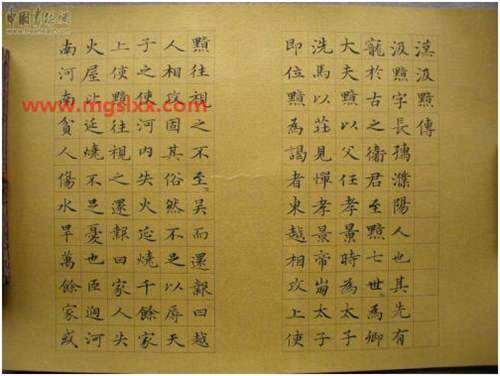 漢汲黯傳
汲黯字長孺濮陽人也其先有
寵於古之衛君至黯七世為卿
大夫黯以父任孝景時為太子
洗馬以莊見憚孝景帝崩太子
即位黯為謁者東越相攻上使
黯往視之不至吳而還報曰越
人相攻固其俗然不足以辱天
子之使河內失火延燒千餘家
上使黯往視之還報曰家人失
火屋比延燒不足憂也臣過河
南河南貧人傷水旱萬餘家或
www.mgslxx.com